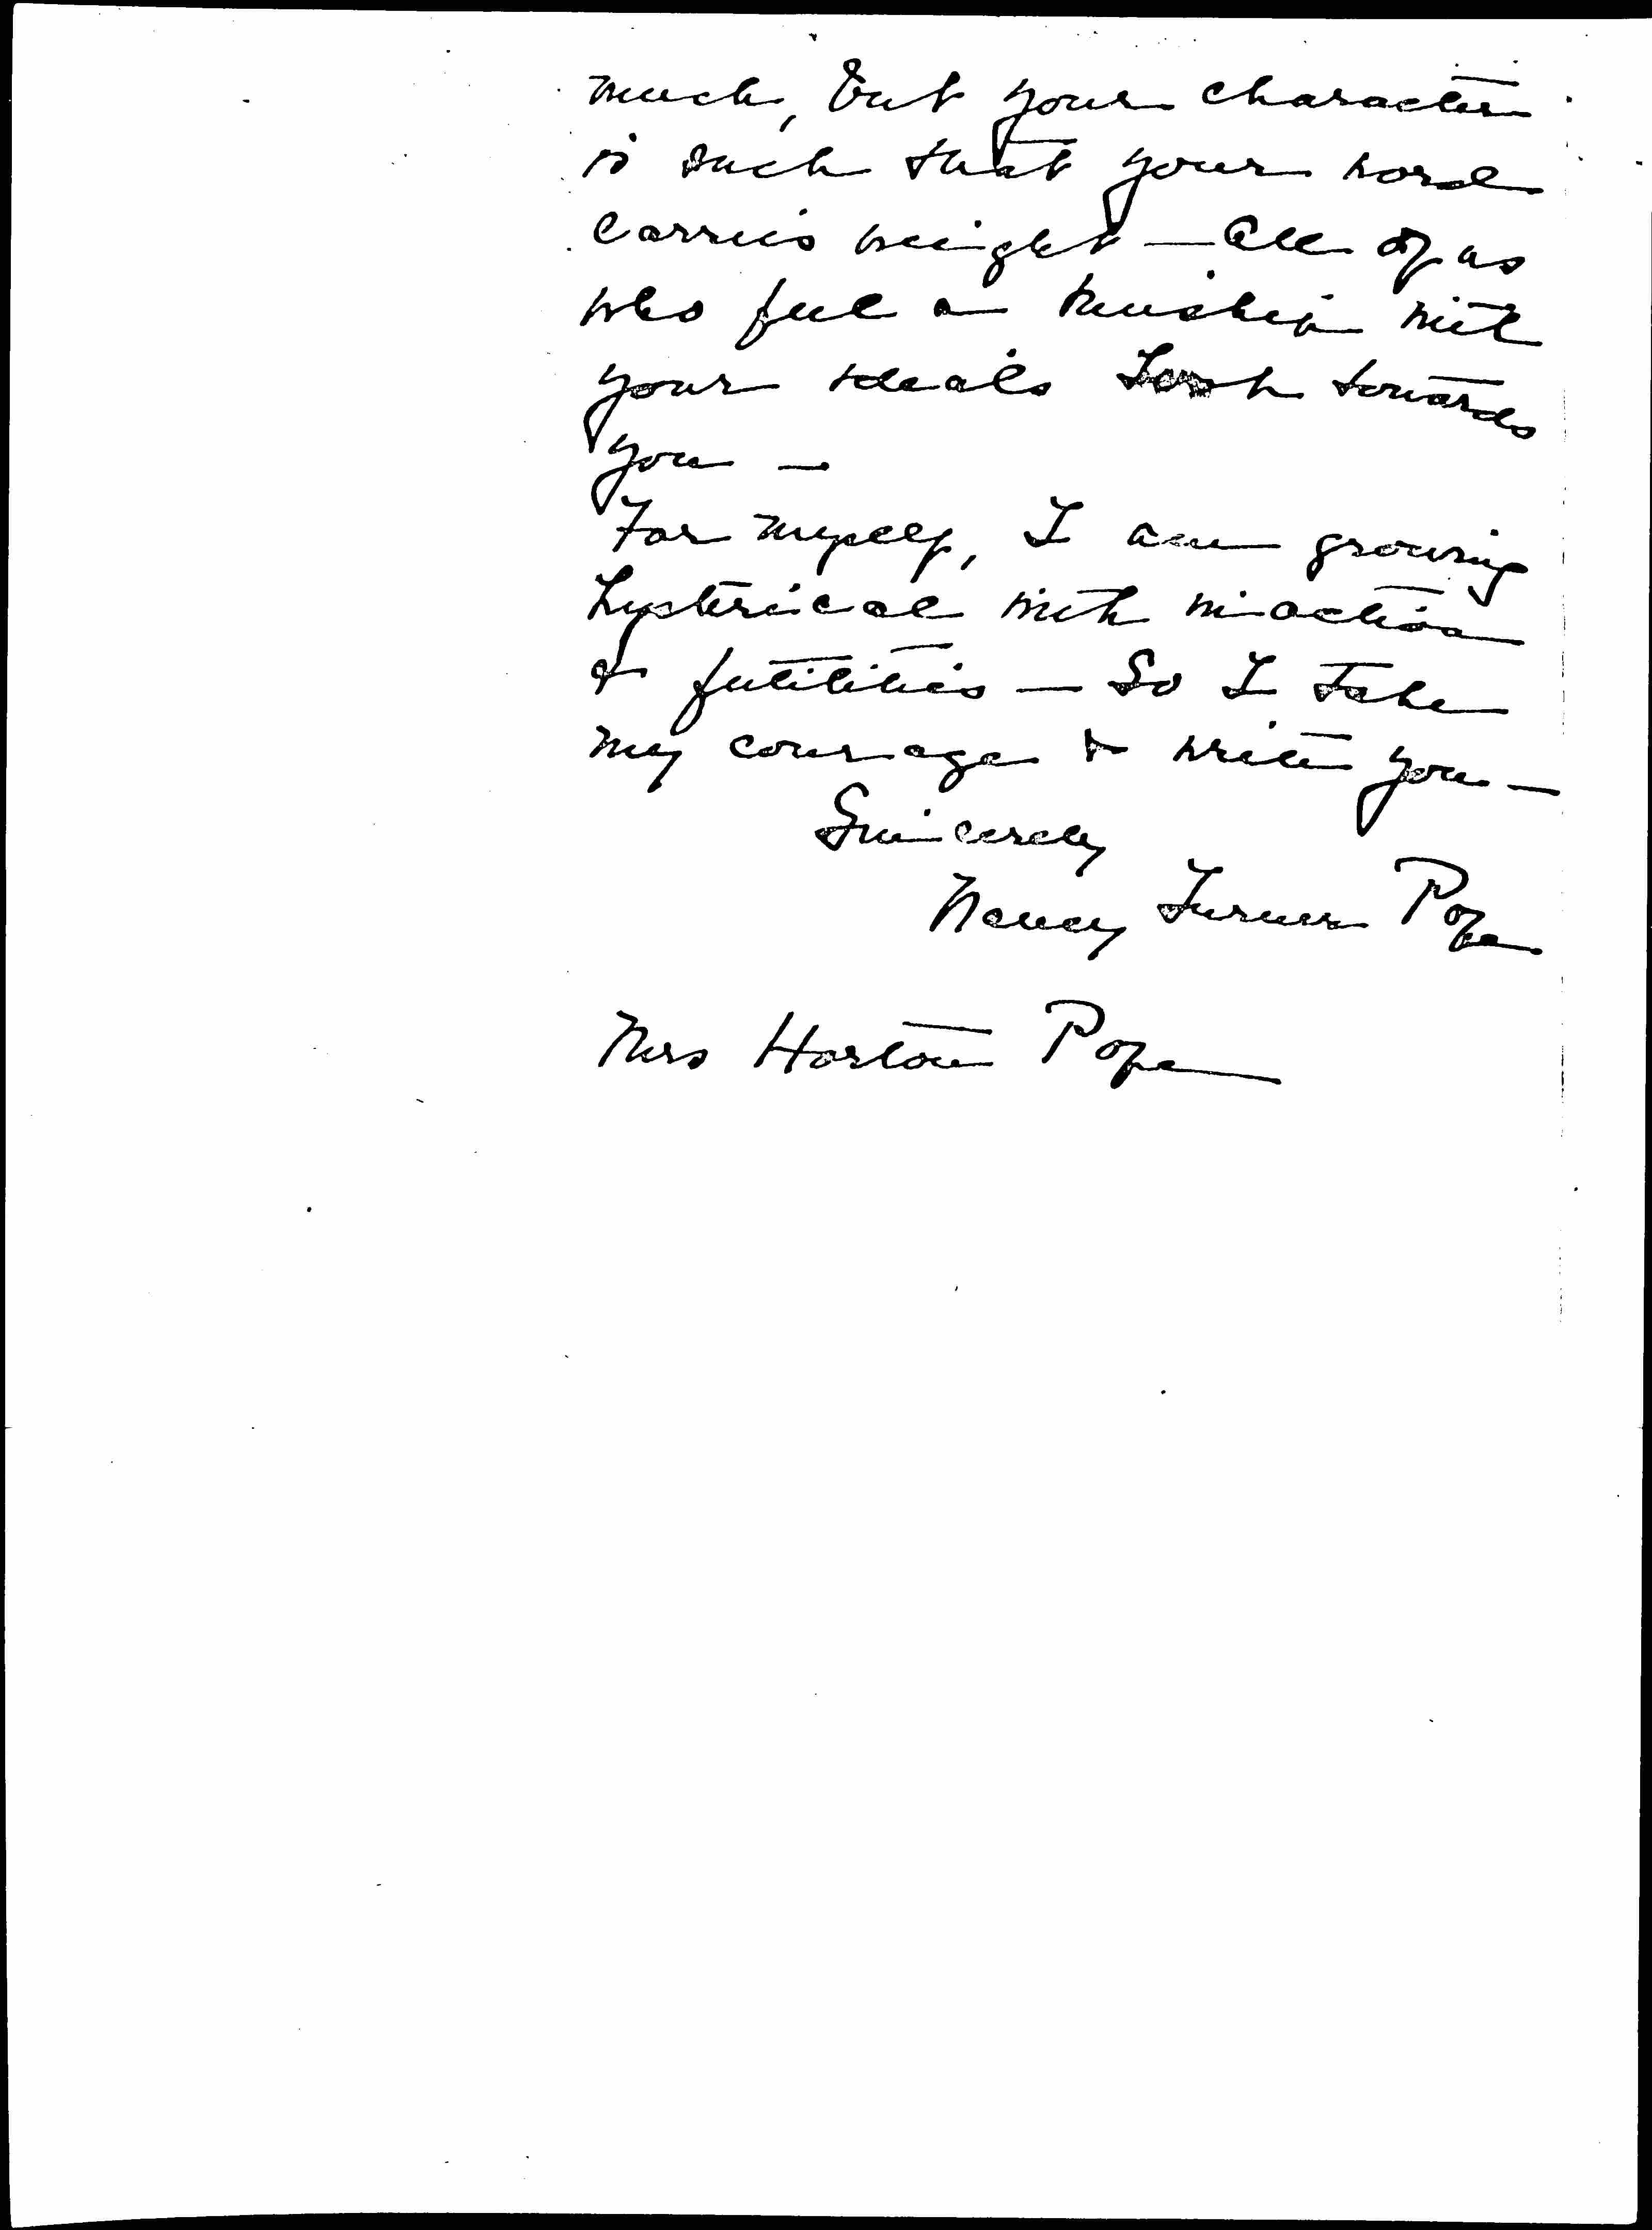 much, but your character
is such that your word
carries weight — All of us
who feel a kinship with
your ideals look towards
you —
For myself, I am growing
hysterical with inaction
& futilities — So I take
my courage & write you —
Sincerely
Nancy Turner Pope
Mrs Horton Pope